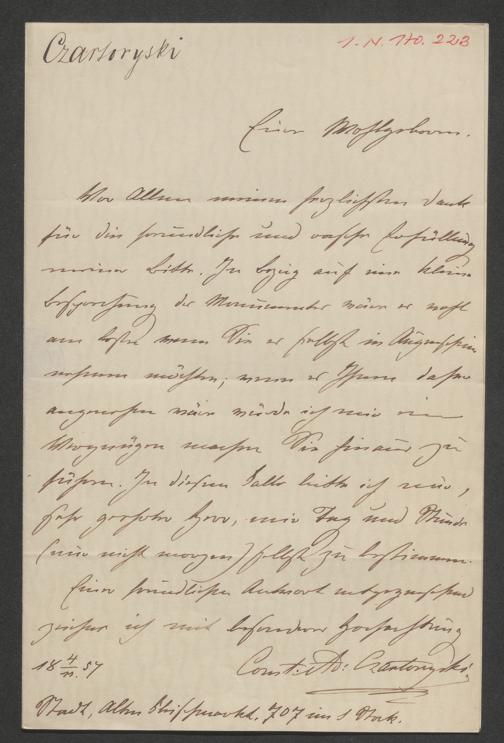 Czartoryski
I. N. 140.223
Euer Wohlgeboren.
Vor Allem meinen herzlichsten Dank
für die freundliche und rasche Erfüllung
meiner Bitte. In bezug auf eine kleine
Besprechung der Monumente wäre es wohl
am besten wenn Sie es selbst in Augenschein
nehmen möchten; wenn es Ihnen daher
angenehm wäre würde ich mir ein
Vergnügen machen Sie hinaus zu
führen. In diesem Falle bitte ich nur,
sehr geehrter Herr, mir Tag und Stunde
(nur nicht morgen) selbst zu bestimmen.
Einer freundlichen Antwort entgegensehend
zeichne ich mit besonderer Hochachtung
18 4/11. 57 Const: Ad: Czartoryski.
Stadt, Alter Fleischmarkt, 707 im 1 Stock.